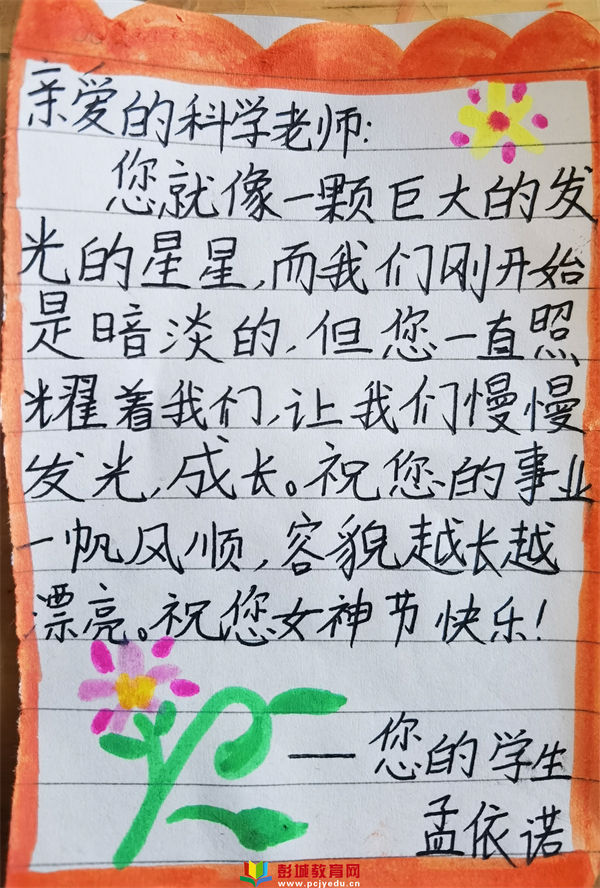 亲爱的科学老师:
您就像一颗巨大的发
光的星星,而我们刚开始
是暗淡的,但您一直照
耀着我们,让我们慢慢
发光,成长。祝您的事业
一帆风顺,容貌越长越
漂亮。祝您女神节快乐!
——您的学生
孟依诺
彭城教育网
www.pcjyedu.cn